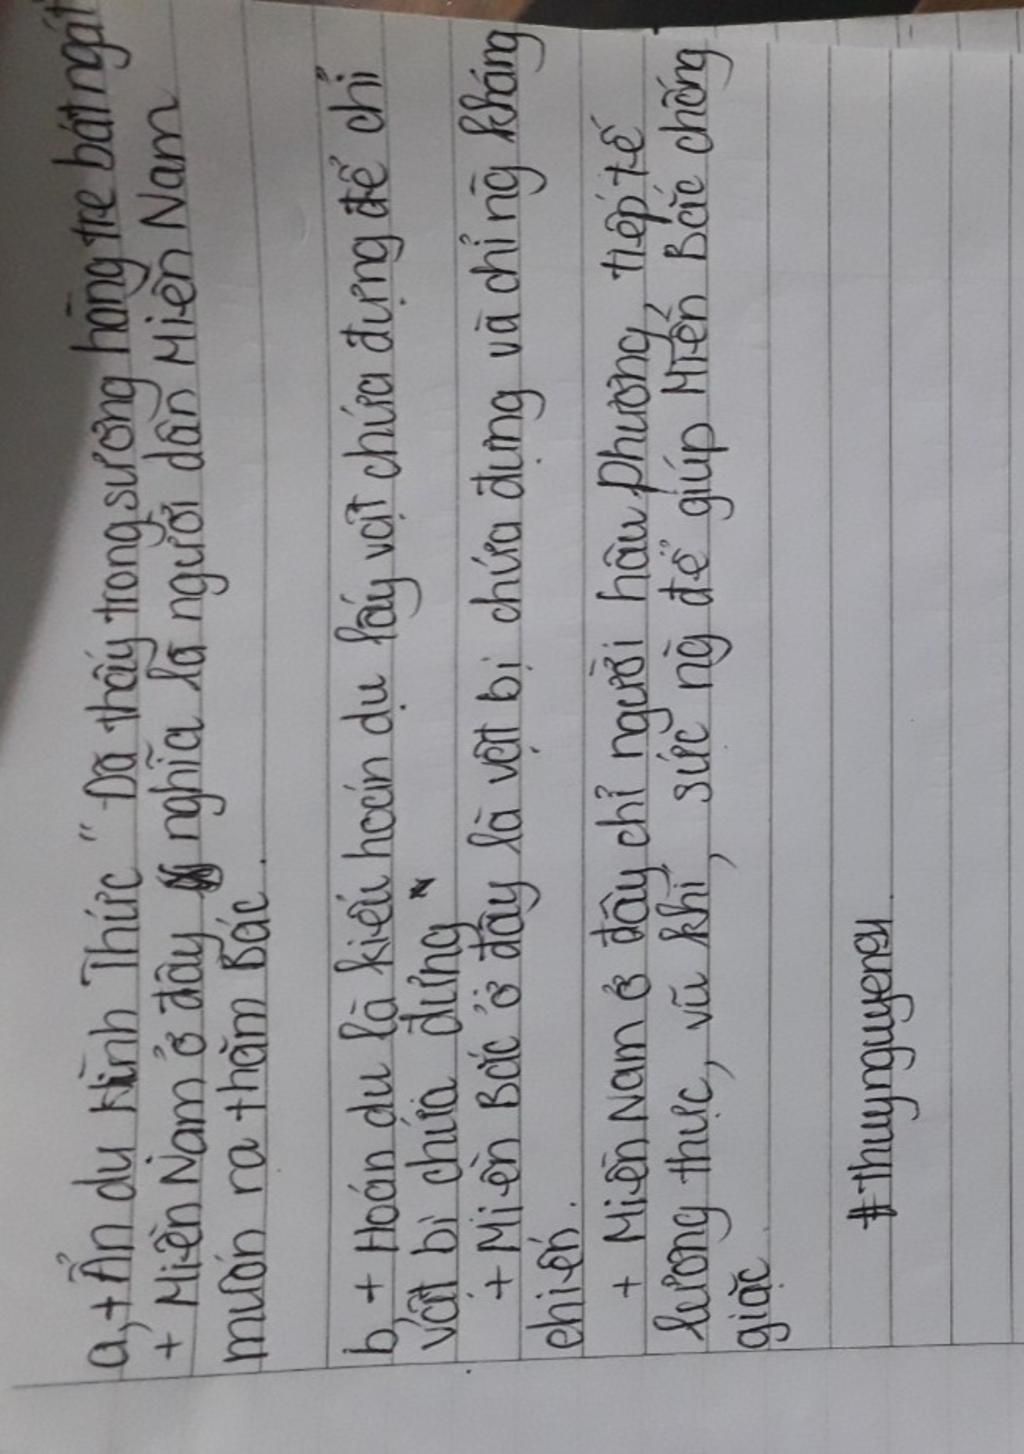 a, + Ẩn dụ Hình Thức " Đã thấy trong sương hàng tre bát ngát
+ Miền Nam ở đây nghĩa là người dân Miền Nam
muốn ra thăm Bác.
b, + Hoán dụ là kiểu hoán dụ lấy vật chứa đựng để chỉ
vật bị chứa đựng"
+ Miền Bắc ở đây là vật bị chứa đựng và chỉ ng̃ kháng
chiến.
+ Miền Nam ở đây chỉ người hậu phương, tiếp tế
lương thực, vũ khí, sức ng̃ để giúp Miền Bắc chống
giặc.
#thuynguyensy.